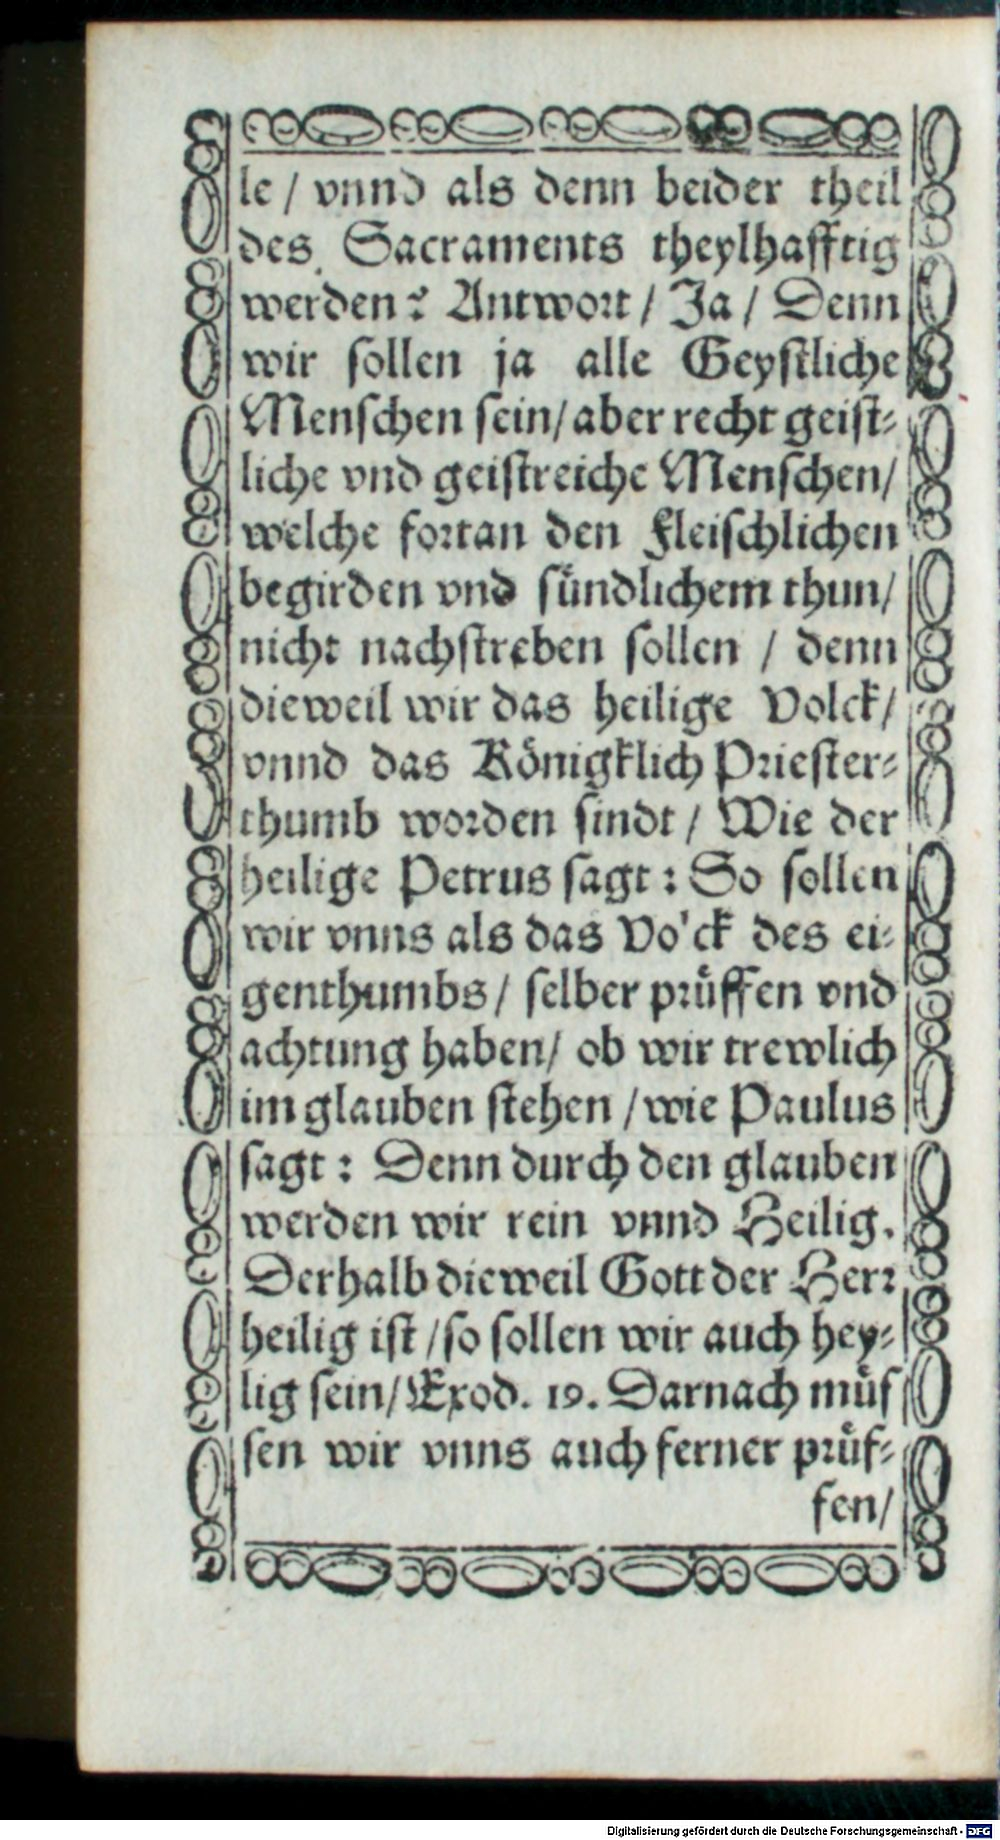 le / vnnd als denn beider theil
des Sacraments theylhafftig
werden? Antwort / Ja / Denn
wir sollen ja alle Geystliche
Menschen sein/ aber recht geist-
liche vnd geistreiche Menschen/
welche fortan den Fleischlichen
begirden vnd sündlichem thun/
nicht nachstreben sollen / denn
dieweil wir das heilige Volck/
vnnd das Königklich Priester-
thumb worden sindt / Wie der
heilige Petrus sagt: So sollen
wir vnns als das Vo'ck des ei-
genthumbs / selber prüffen vnd
achtung haben/ ob wir trewlich
im glauben stehen / wie Paulus
sagt: Denn durch den glauben
werden wir rein vnnd Heilig.
Derhalb dieweil Gott der Herr
heilig ist / so sollen wir auch hey-
lig sein/ Exod. 19. Darnach müs
sen wir vnns auch ferner prüf-
fen/
Digitalisierung gefördert durch die Deutsche Forschungsgemeinschaft - DFG